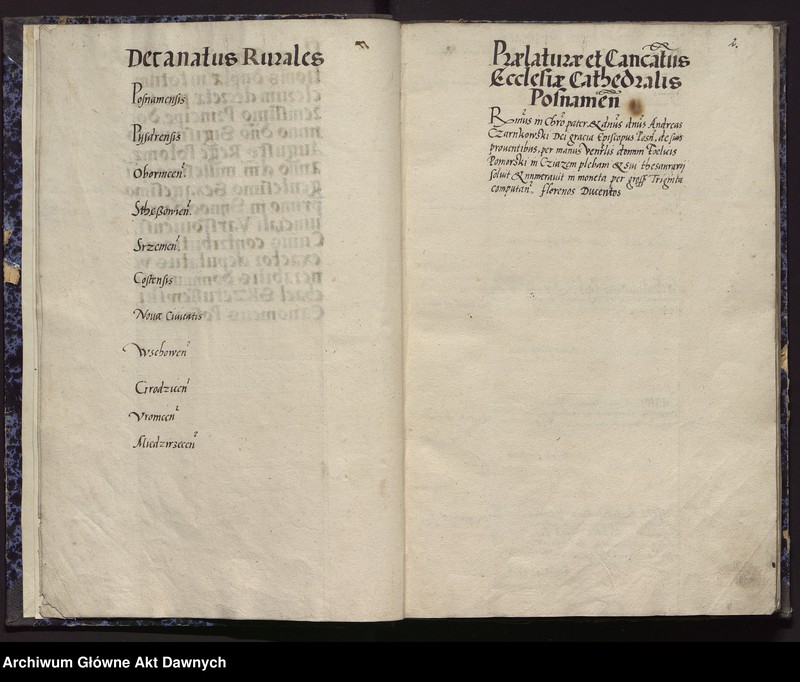 Decanatus Rurales
Posnamensis
Pysdrensis
Obornicen
Stheßewien
Srzemen
Costensis
Nouæ Ciuitatis
Wschowen
Grodzicen
Vromcen
Miedzirzecen
2.
Prælaturæ et Canc̃atus
Ecclesiæ Cathedralis
Posnamen̄
in Chr̃o pater, & dnũs dnũs Andreas
Czarnkowski Dei gracia Episcopus Posn, de suis
prouentibus, per manus domini Foelicis
Pomorski in Cziazem plebani & sui thesaurarij
soluit & numerauit in moneta per Triginta
computan. florenos Ducentos
Archiwum Główne Akt Dawnych